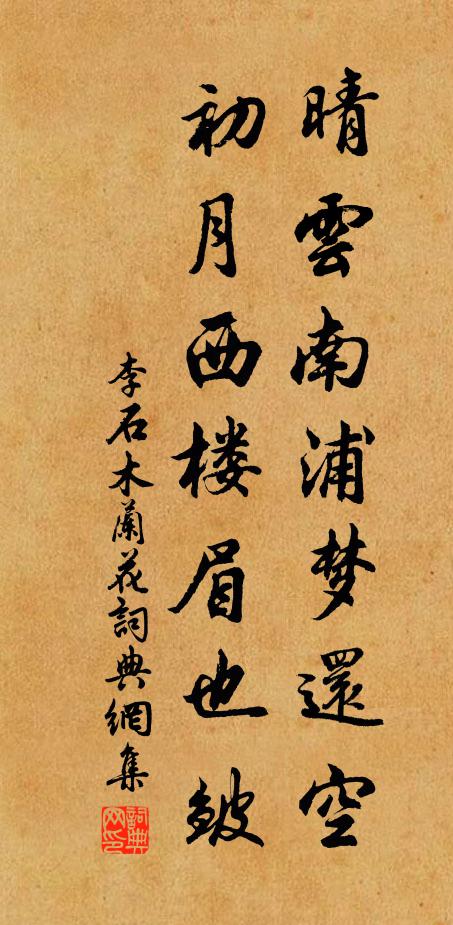 晴雲南浦梦還空
初月西楼眉也皱
李石木蘭花詞典網集
詞典网印